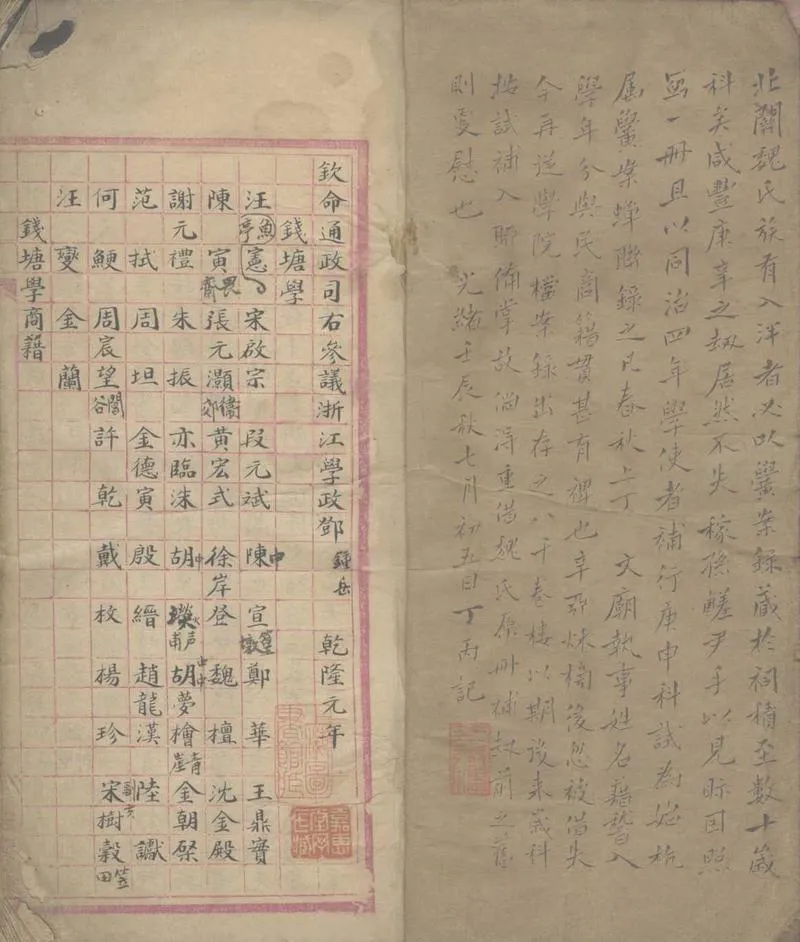 北關魏氏族有入泮者必以黌案錄藏於祠積至數十歲
科矣咸豐庚辛之劫居然不失稼孫鹺尹手以見眎因照
寫一冊且以同治四年學使者補行庚申科試為始杭
屬黌案蟬聯錄之凡春秋上丁文廟執事姓名藉諗入
學年分與民商籍貫甚有裨也辛卯秋橋後忽被借失
今再逆學院檔案錄出存之八千卷樓以期設未歲科
按試補入聊備掌故倘得重借魏氏原冊補數前之舊
則更慰也 光緒壬辰秋七月初五日丁丙記
欽命通政司右參議浙江學政鄧 鍾岳 乾隆元年
錢塘學
汪憲 魚亭 宋啟宗 段元斌 陳 中 宣 簠墩 鄭華 王鼎實
陳寅 畏齋 張元灝 衛郊 黃宏式 徐岸登 魏檀 沈金殿
謝元禮 朱振 亦臨洙 胡 中 璞 甫 胡 夢檜 青崖 金朝棨
范拭 周坦 金德寅 殷縉 趙龍漢 陸讞
何鯁 周宸望 閬谷 許乾 戴枚 楊珍 宋樹穀 笠田
汪燮 金蘭
錢塘學商籍